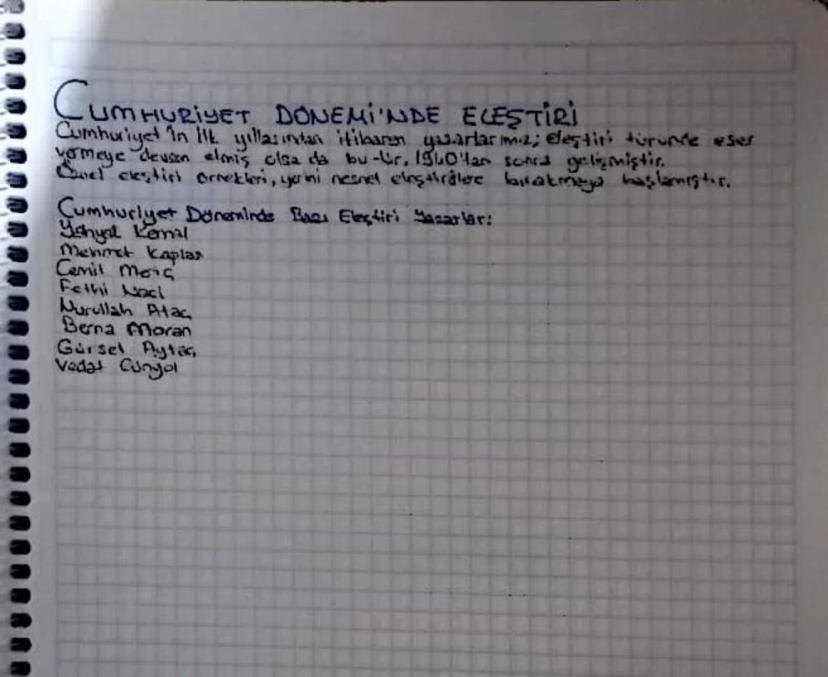 CUMHURİYET DÖNEMİ'NDE ELEŞTİRİ
Cumhuriyet'in ilk yıllarından itibaren yazarlarımız; eleştiri türünde eser
vermeye devam etmiş olsa da bu tür, 1940'tan sonra gelişmiştir.
Öznel eleştiri örnekleri, yerini nesnel eleştirilere bırakmaya başlamıştır.
Cumhuriyet Döneminde Bazı Eleştiri Yazarları:
Yahya Kemal
Mehmet Kaplan
Cemil Meriç
Fethi Naci
Nurullah Ataç
Berna Moran
Gürsel Aytaç
Vedat Günyol